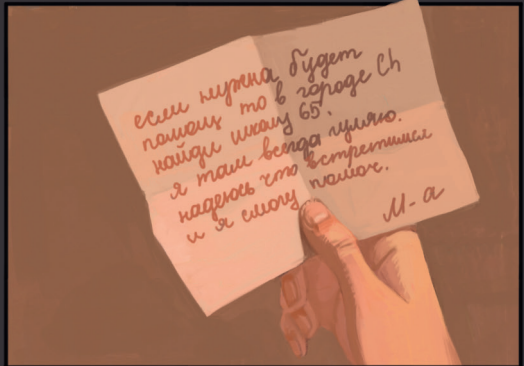 если нужна будет
помощ то в городе Ch
найди школу 65.
я там всегда гуляю.
надеюсь что встретимся
и я смогу помоч.
М-а